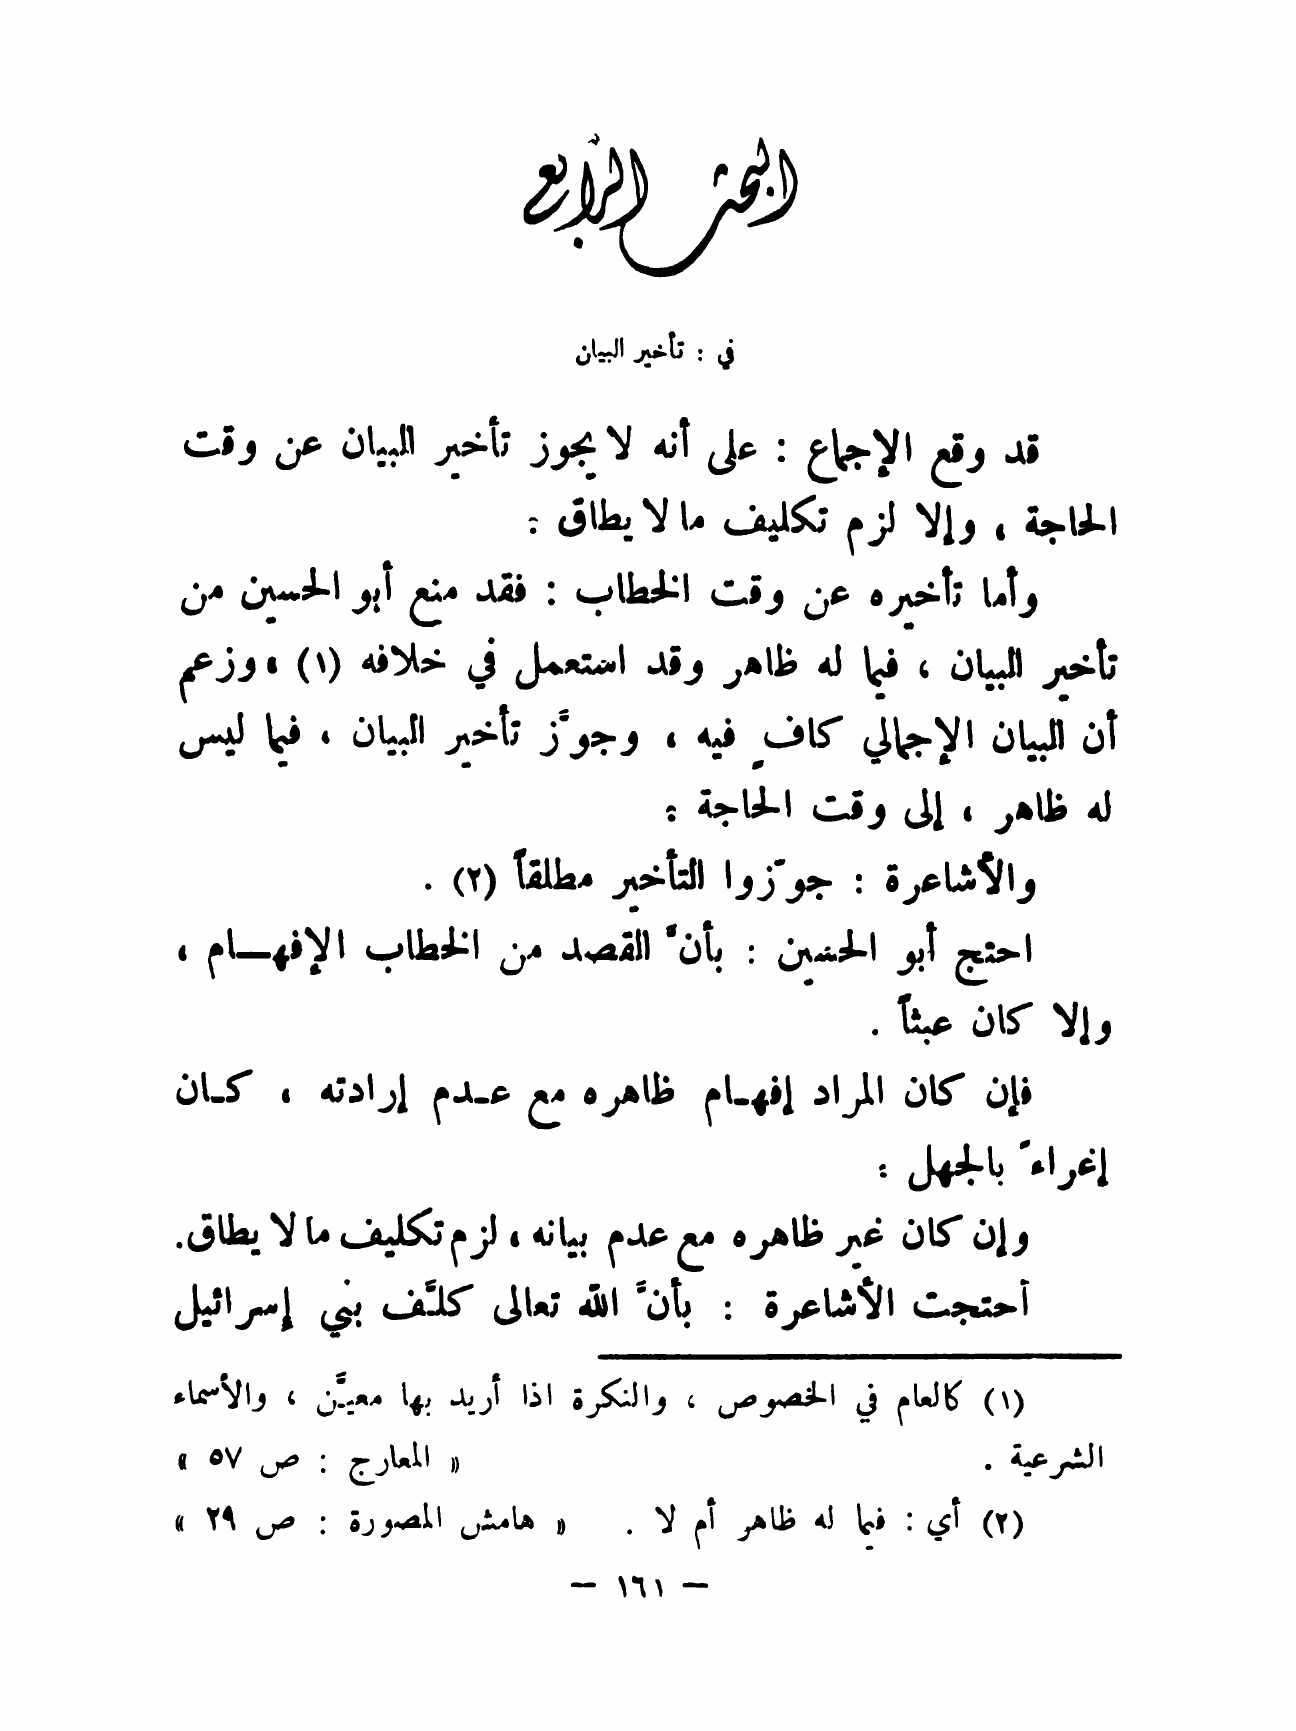 البحث الرابع
في : تأخير البيان
قد وقع الإجماع : على أنه لا يجوز تأخير البيان عن وقت
الحاجة ، وإلا لزم تكليف ما لا يطاق :
وأما تأخيره عن وقت الخطاب : فقد منع أبو الحسين من
تأخير البيان ، فيما له ظاهر وقد استعمل في خلافه (١) ، وزعم
أن البيان الإجمالي كافٍ فيه ، وجوَّز تأخير البيان ، فيما ليس
له ظاهر ، إلى وقت الحاجة :
والأشاعرة : جوّزوا التأخير مطلقاً (٢) .
احتج أبو الحسين : بأنَّ القصد من الخطاب الإفهـــام ،
وإلا كان عبثاً .
فإن كان المراد إفهـام ظاهره مع عـدم إرادته ، كـان
إغراءً بالجهل :
وإن كان غير ظاهره مع عدم بيانه ، لزم تكليف ما لا يطاق.
أحتجت الأشاعرة : بأنَّ الله تعالى كلـَّف بني إسرائيل
(١) كالعام في الخصوص ، والنكرة اذا أريد بها معيـَّن ، والأسماء
الشرعية . « المعارج : ص ٥٧ »
(٢) أي : فيما له ظاهر أم لا . « هامش المصورة : ص ٢٩ »
— ١٦١ —